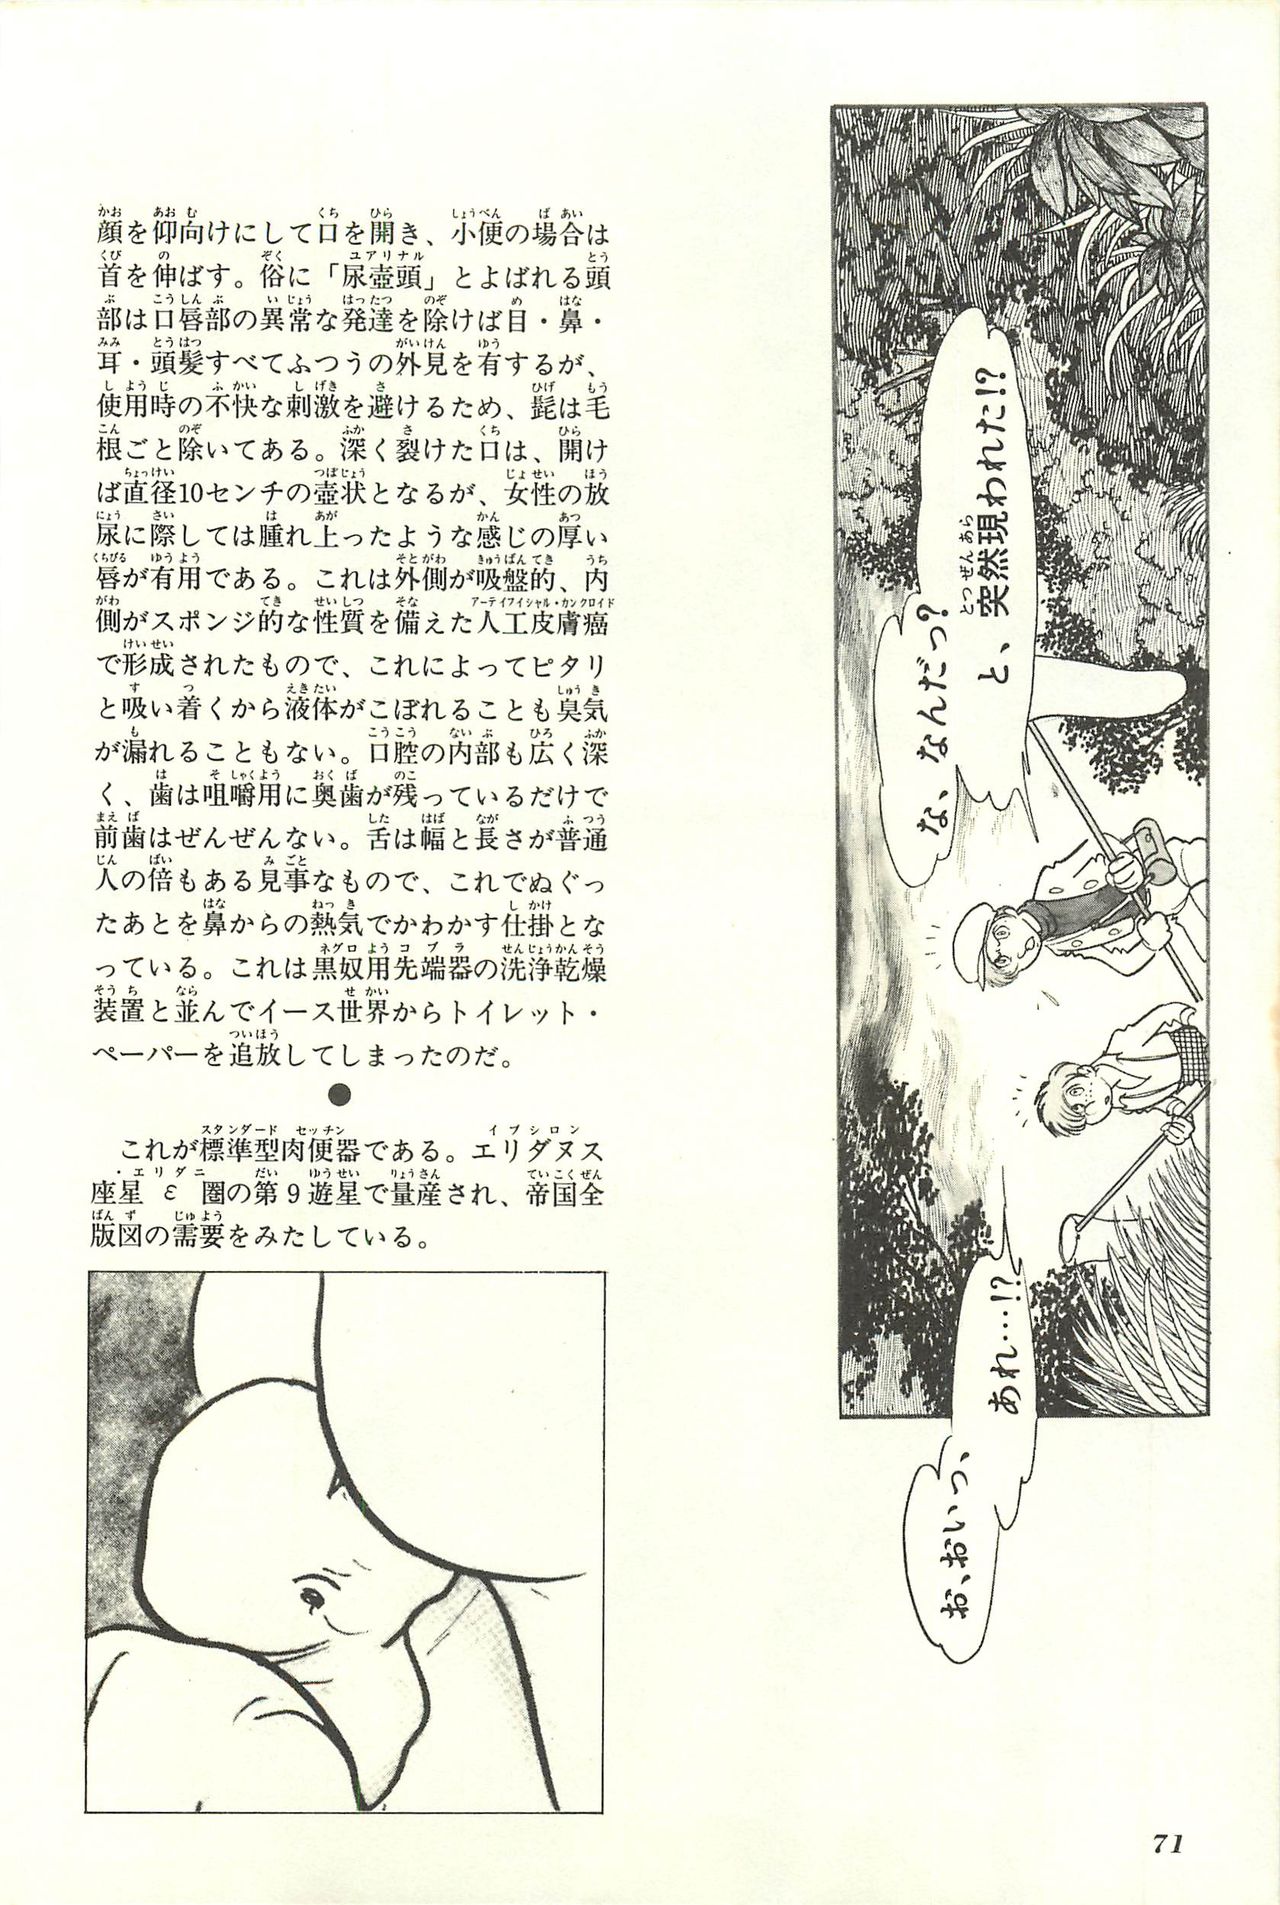 顔を仰向けにして口を開き、小便の場合は
首を伸ばす。俗に「尿壺頭」とよばれる頭
部は口唇部の異常な発達を除けば目・鼻・
耳・頭髪すべてふつうの外見を有するが、
使用時の不快な刺激を避けるため、髭は毛
根ごと除いてある。深く裂けた口は、開け
ば直径10センチの壺状となるが、女性の放
尿に際しては腫れ上ったような感じの厚い
唇が有用である。これは外側が吸盤的、内
側がスポンジ的な性質を備えた人工皮膚癌
で形成されたもので、これによってピタリ
と吸い着くから液体がこぼれることも臭気
が漏れることもない。口腔の内部も広く深
く、歯は咀嚼用に奥歯が残っているだけで
前歯はぜんぜんない。舌は幅と長さが普通
人の倍もある見事なもので、これでぬぐっ
たあとを鼻からの熱気でかわかす仕掛とな
っている。これは黒奴用先端器の洗浄乾燥
装置と並んでイース世界からトイレット・
ペーパーを追放してしまったのだ。
●
これが標準型肉便器である。エリダヌス
座星 ε 圏の第９遊星で量産され、帝国全
版図の需要をみたしている。
な、なんだっ？
と、突然現われた!?
お、おいっ、
あれ…!?
71